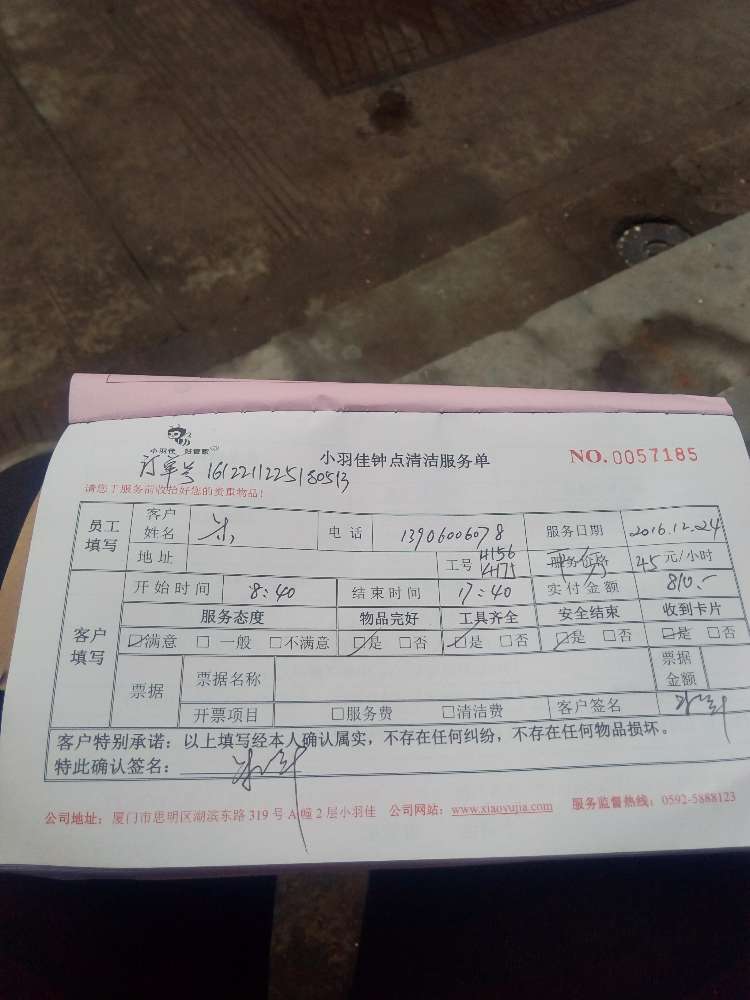 小羽佳 好管家
小羽佳钟点清洁服务单 NO.0057185
订单号 161221122518 0513
请您于服务前收拾好您的贵重物品!
员工填写 客户姓名 电话 13906006078 服务日期 2016.12.24
地址 工号 4156 4171 服务价格 平方 45元/小时
客户填写 开始时间 8:40 结束时间 17:40 实付金额 810.-
服务态度 物品完好 工具齐全 安全结束 收到卡片
☑满意 □一般 □不满意 ☑是 □否 ☑是 □否 ☑是 □否 ☑是 □否
票据 票据名称 票据金额
开票项目 □服务费 □清洁费 客户签名
客户特别承诺：以上填写经本人确认属实，不存在任何纠纷，不存在任何物品损坏。
特此确认签名：
公司地址：厦门市思明区湖滨东路319号A幢2层小羽佳 公司网站：www.xiaoyujia.com 服务监督热线：0592-5888123